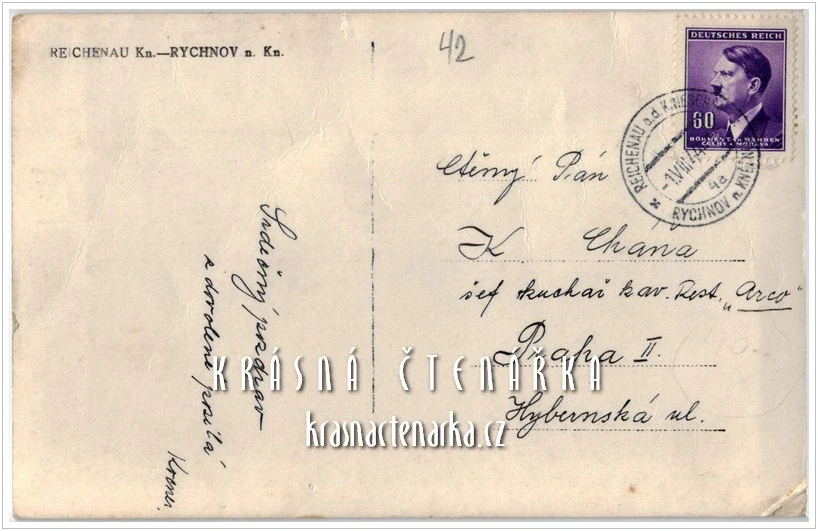 REICHENAU Kn.—RYCHNOV n. Kn.
42
DEUTSCHES REICH
60
BÖHMEN U. MÄHREN
ČECHY A MORAVA
REICHENAU a.d. KNIESE
1.VIII
4a
RYCHNOV n. KNĚŽN
Srdečný pozdrav
z dovolené posílá
Ctěný Pán
K Chána
šéf kuchař kav. Rest. „Arco"
Praha II.
Hybernská ul.
KRÁSNÁ ČTENÁŘKA
krasnactenarka.cz